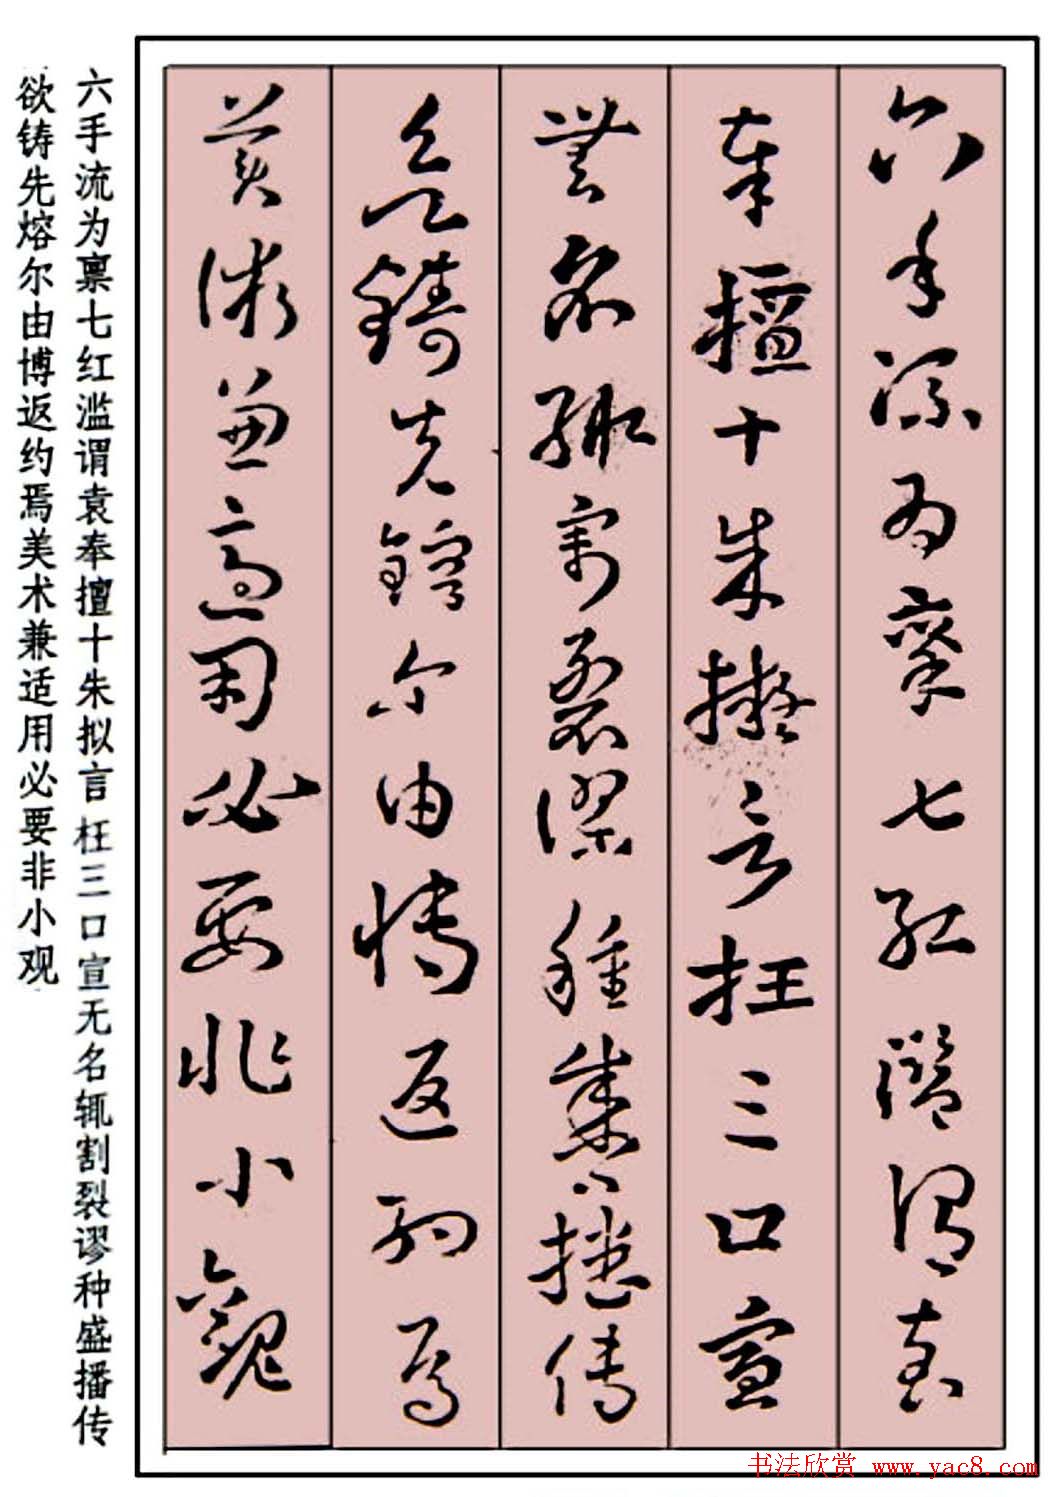 六手流为稟七紅濫謂袁
奉擅十朱擬言枉三口宣
無名輒割裂謬種盛播傳
欲鑄先鎔尔由博返約焉
美術兼適用必要非小觀
六手流为禀七红滥谓袁奉擅十朱拟言枉三口宣无名辄割裂谬种盛播传
欲铸先熔尔由博返约焉美术兼适用必要非小观
书法欣赏 www.yac8.com